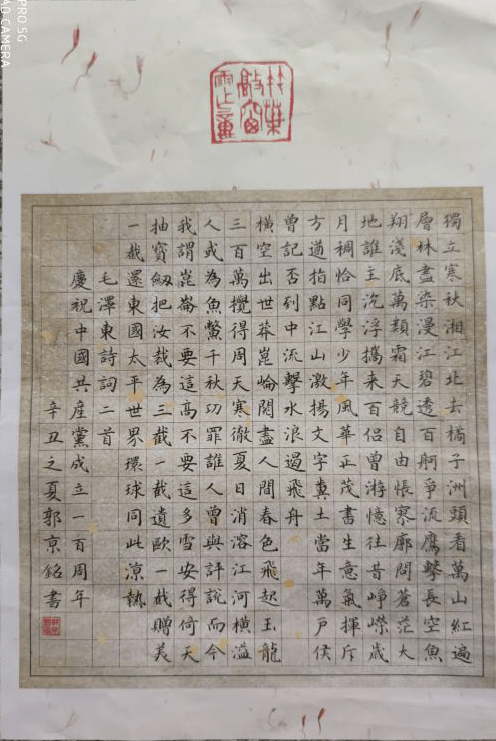 PRO 5G
AD CAMERA
獨立寒秋湘江北去橘子洲頭看萬山紅遍
層林盡染漫江碧透百舸爭流鷹擊長空魚
翔淺底萬類霜天競自由悵寥廓問蒼茫大
地誰主沉浮攜来百侶曾游憶往昔崢嶸歲
月稠恰同學少年風華正茂書生意氣揮斥
方遒指點江山激揚文字糞土當年萬戶侯
曾記否到中流擊水浪遏飛舟
橫空出世莽崑崙閱盡人間春色飛起玉龍
三百萬攪得周天寒徹夏日消溶江河橫溢
人或為魚鱉千秋功罪誰人曾與評說而今
我謂崑崙不要這高不要這多雪安得倚天
抽寶劍把汝裁為三截一截遺歐一截贈美
一截還東國太平世界環球同此涼熱
毛澤東詩詞二首
慶祝中國共產黨成立一百周年
辛丑之夏郭京銘書